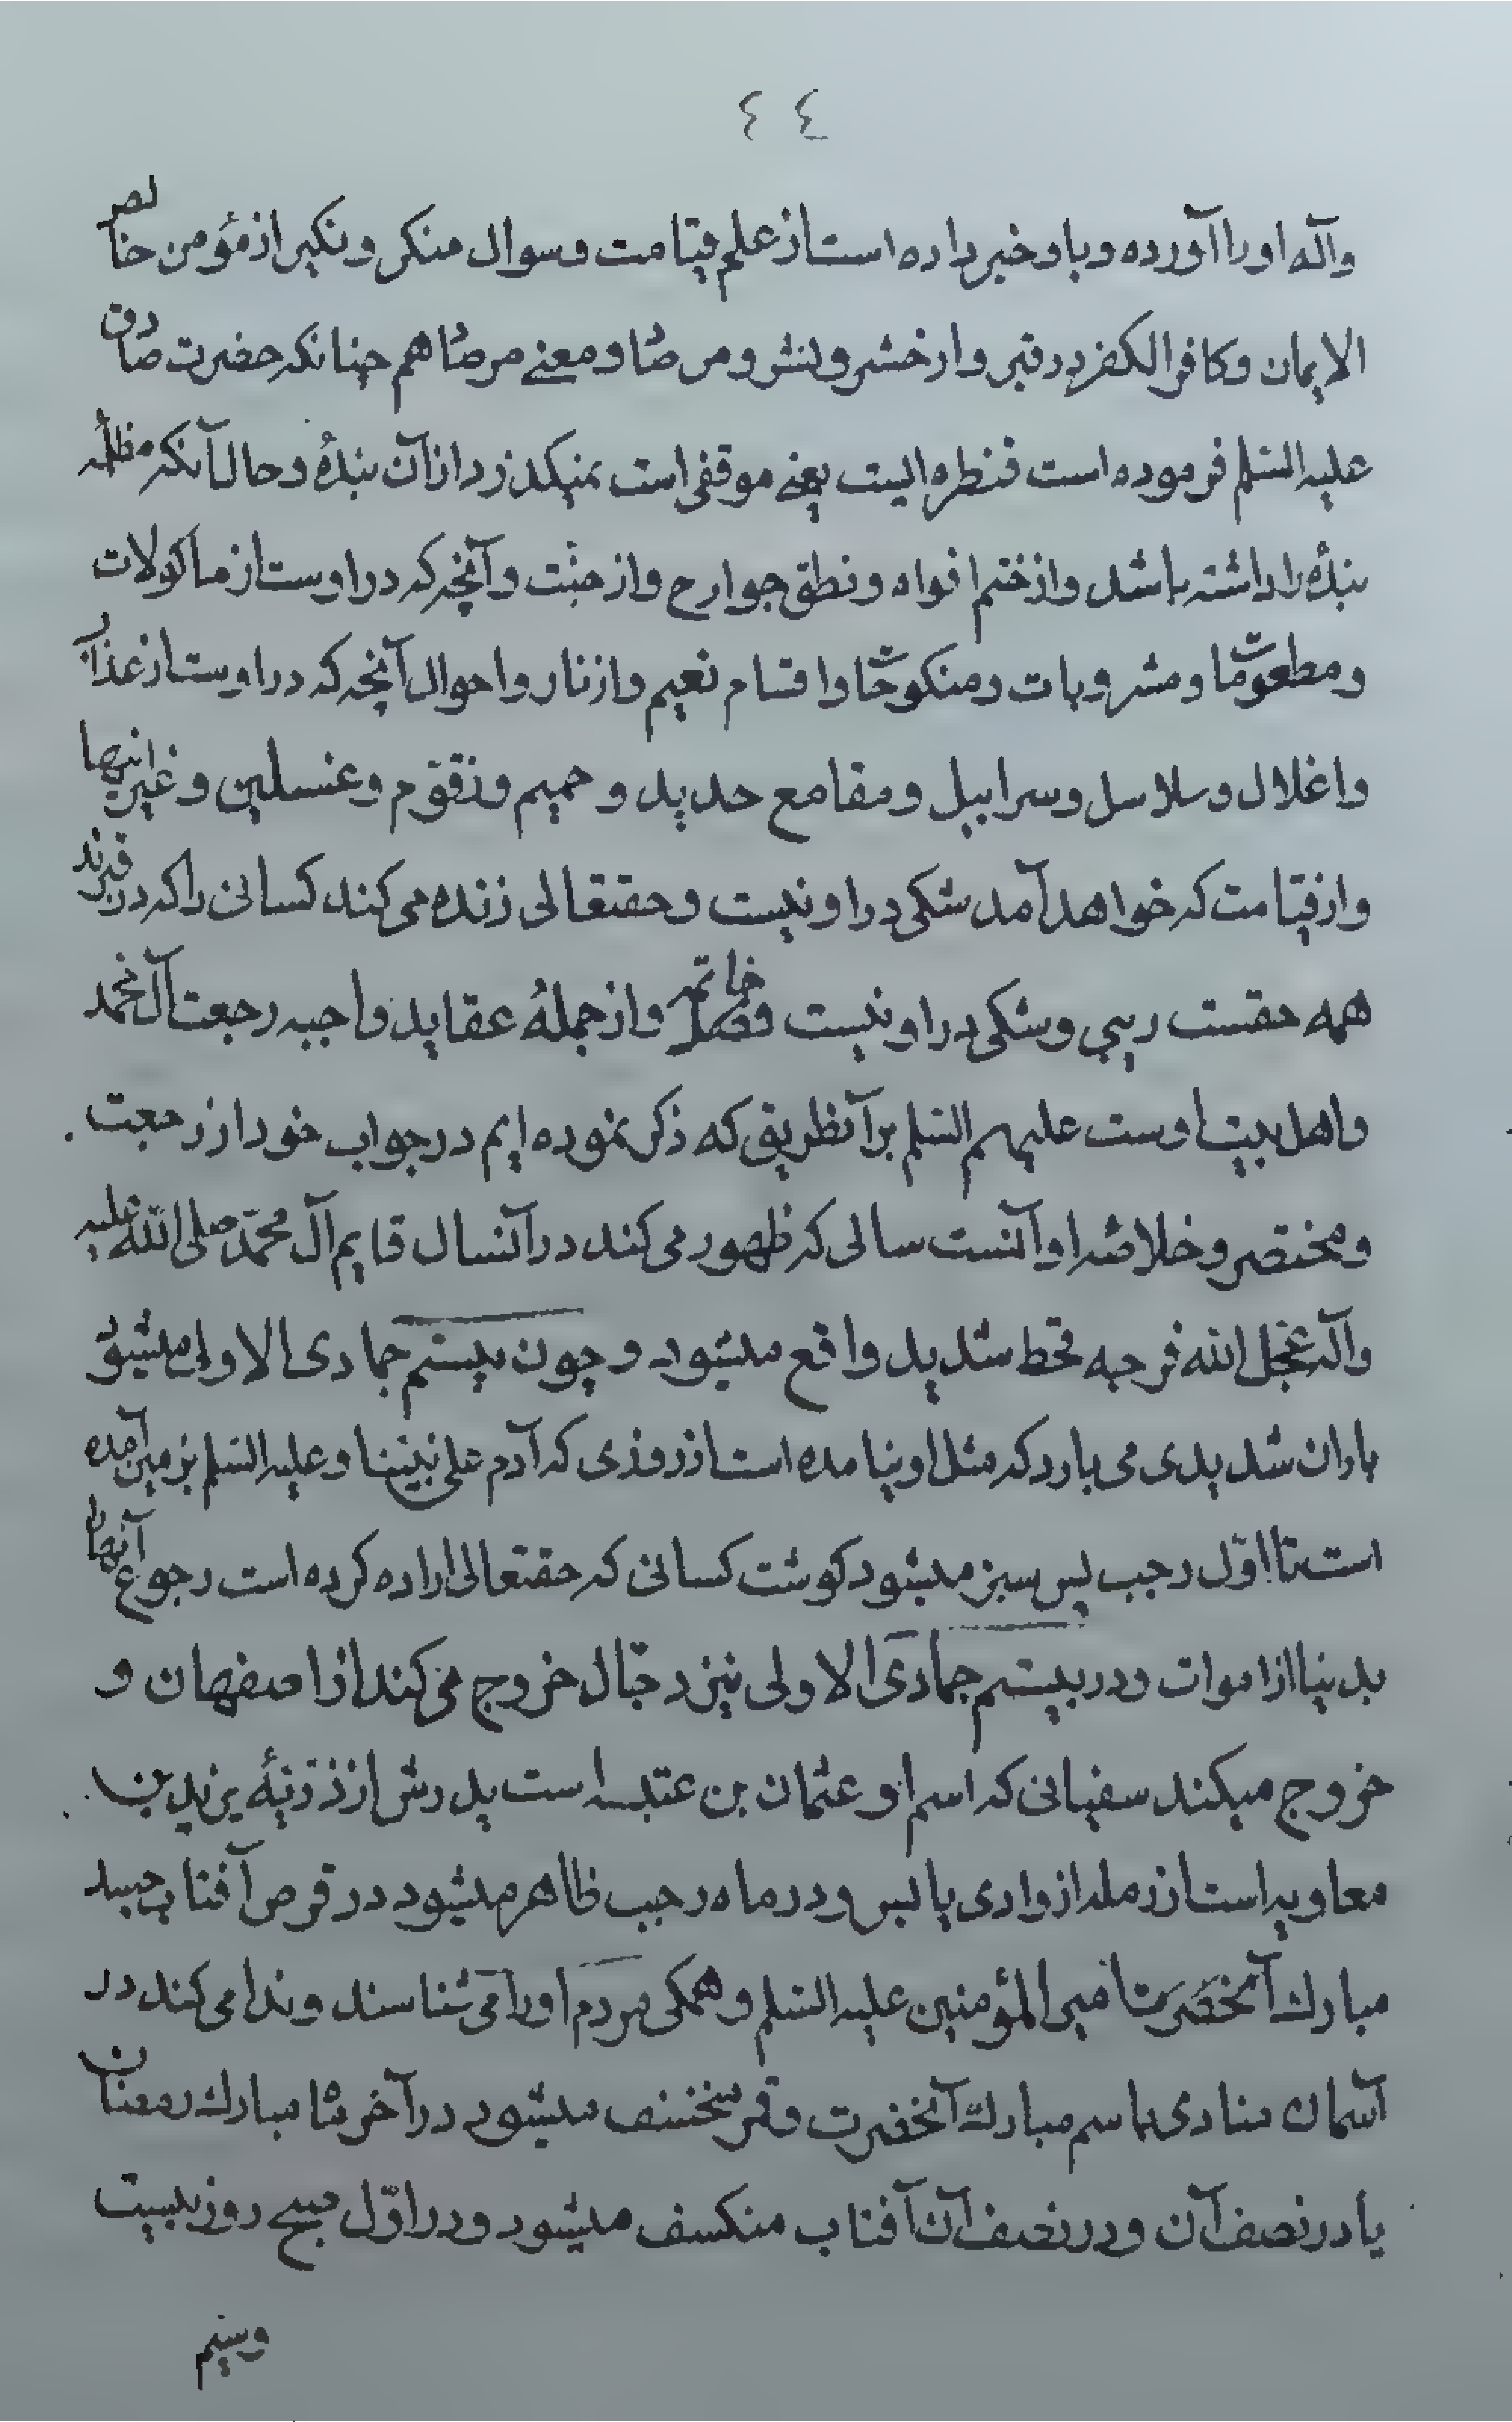 ٤٤
وآله اورا آورده وباو خبر داده است از علم قیامت وسوال منکر ونکیر از مؤمن خالص
الایمان وکافر الکفر در قبر واز حشر ونشر ومرصاد ومعنی مرصاد هم چنانکه حضرت صادق
علیه السلم فرموده است قنطره ایست یعنی موقفی است نمیکذرد از آن بندهٔ وحال آنکه مظلمه
بندهٔ را داشته باشد واز ختم افواه ونطق جوارح واز جنت وآنچه که در اوست از ماکولات
ومطعومات ومشروبات ومنکوحات واقسام نعیم واز نار واحوال آنچه که در اوست از عذاب
واغلال وسلاسل وسرابیل ومقامع حدید وحمیم وزقوّم وغسلین وغیر اینها
واز قیامت که خواهد آمد شکی در او نیست وحقتعالی زنده می کند کسانی را که در قبرند
همه حقست ریبی وشکی در او نیست فصل خاتمه واز جملهٔ عقاید واجبه رجعت آل محمد
واهل بیت اوست علیهم السلم بر آنطریق که ذکر نموده ایم در جواب خود از رجعت
ومختصر وخلاصه او آنست سالی که ظهور می کند در آنسال قایم آل محمّد صلی الله علیه
وآله عجل الله فرجه قحط شدید واقع میشود وچون بیستم جمادی الاولی میشود
باران شدیدی می بارد که مثل او نیامده است از روزی که آدم علی نبینا وعلیه السلم بزمین آمده
است تا اوّل رجب پس سبز میشود کوشت کسانی که حقتعالی اراده کرده است رجوع آنهارا
بدنیا از اموات ودر بیستم جمادی الاولی نیز دجّال خروج می کند از اصفهان و
خروج میکند سفیانی که اسم او عثمان بن عتبسه است پدرش از ذرّیهٔ یزید بن
معاویه است از رمله از وادی یابس ودر ماه رجب ظاهر میشود در قرص آفتاب جسد
مبارك آنحضرت امیر المؤمنین علیه السلم وهمکی مردم اورا می شناسند وندا می کند در
آسمان منادی باسم مبارك آنحضرت وقمر منخسف میشود در آخر ماه مبارك رمضان
یا در نصف آن ودر نصف آن آفتاب منکسف میشود ودر اوّل صبح روز بیست
وسیم